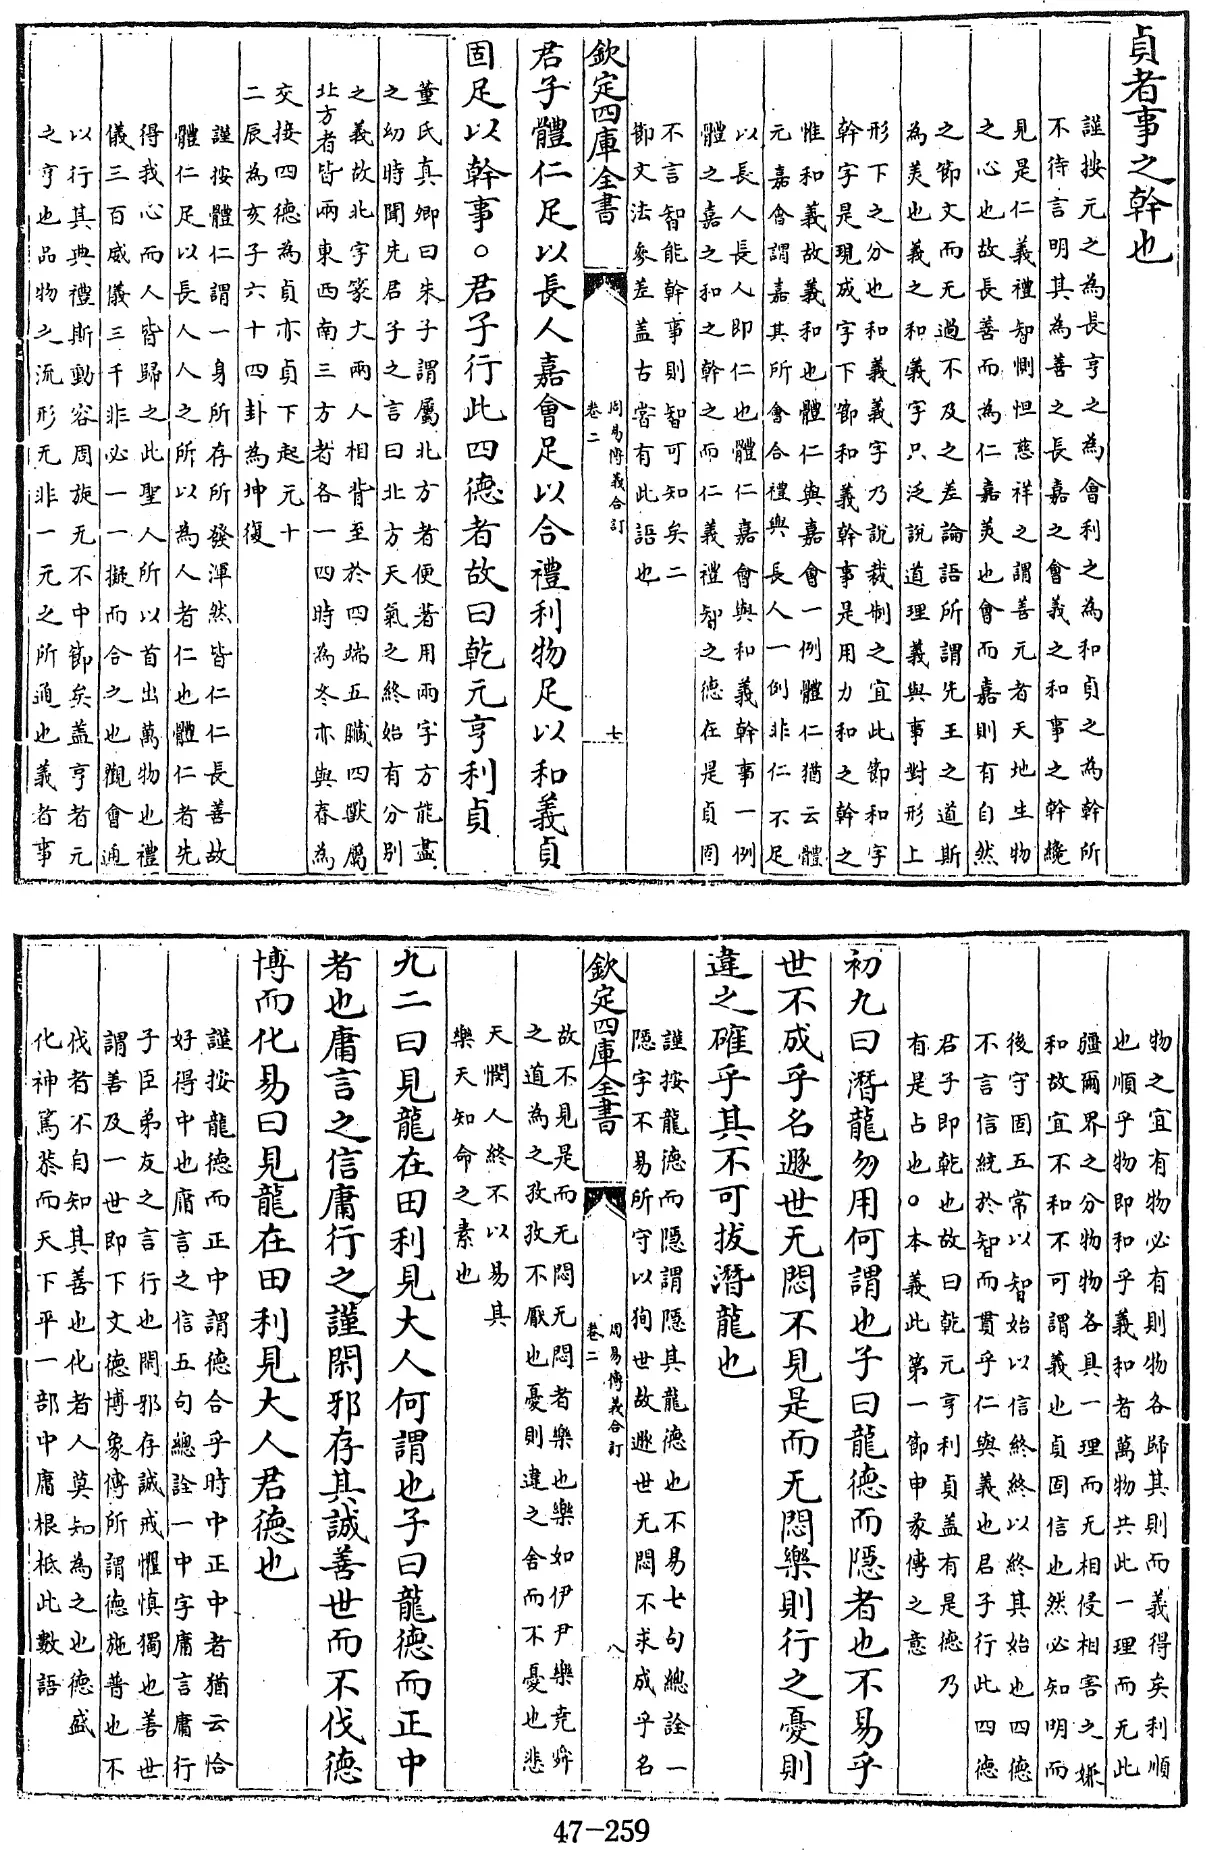 貞者事之幹也
謹按元之為長亨之為會利之為和貞之為幹所
不待言明其為善之長嘉之會義之和事之幹纔
見是仁義禮智惻怛慈祥之謂善元者天地生物
之心也故長善而為仁嘉美也會而嘉則有自然
之節文而无過不及之差論語所謂先王之道斯
為美也義之和義字只泛說道理義與事對形上
形下之分也和義義字乃說裁制之宜此節和字
幹字是現成字下節和義幹事是用力和之幹之
惟和義故義和也體仁與嘉會一例體仁猶云體
元嘉會謂嘉其所會合禮與長人一例非仁不足
以長人長人即仁也體仁嘉會與和義幹事一例
體之嘉之和之幹之而仁義禮智之德在是貞固
不言智能幹事則智可知矣二
節文法參差盖古嘗有此語也
欽定四庫全書
周易傳義合訂
卷二
七
君子體仁足以長人嘉會足以合禮利物足以和義貞
固足以幹事○君子行此四德者故曰乾元亨利貞
董氏真卿曰朱子謂屬北方者便著用兩字方能盡
之幼時聞先君子之言曰北方天氣之終始有分別
之義故北字篆大兩人相背至於四端五臟四獸屬
北方者皆兩東西南三方者各一四時為冬亦與春為
交接四德為貞亦貞下起元十
二辰為亥子六十四卦為坤復
謹按體仁謂一身所存所發渾然皆仁仁長善故
體仁足以長人人之所以為人者仁也體仁者先
得我心而人皆歸之此聖人所以首出萬物也禮
儀三百威儀三千非必一一擬而合之也觀會通
以行其典禮斯動容周旋无不中節矣盖亨者元
之亨也品物之流形无非一元之所通也義者事
物之宜有物必有則物各歸其則而義得矣利順
也順乎物即和乎義和者萬物共此一理而无此
疆爾界之分物物各具一理而无相侵相害之嫌
和故宜不和不可謂義也貞固信也然必知明而
後守固五常以智始以信終終以終其始也四德
不言信統於智而貫乎仁與義也君子行此四德
君子即乾也故曰乾元亨利貞盖有是德乃
有是占也○本義此第一節申彖傳之意
初九曰潛龍勿用何謂也子曰龍德而隱者也不易乎
世不成乎名遯世无悶不見是而无悶樂則行之憂則
違之確乎其不可拔潛龍也
謹按龍德而隱謂隱其龍德也不易七句總詮一
隱字不易所守以狥世故遯世无悶不求成乎名
欽定四庫全書
周易傳義合訂
卷二
八
故不見是而无悶无悶者樂也樂如伊尹樂堯舜
之道為之孜孜不厭也憂則違之舍而不憂也悲
天憫人終不以易其
樂天知命之素也
九二曰見龍在田利見大人何謂也子曰龍德而正中
者也庸言之信庸行之謹閑邪存其誠善世而不伐德
博而化易曰見龍在田利見大人君德也
謹按龍德而正中謂德合乎時中正中者猶云恰
好得中也庸言之信五句總詮一中字庸言庸行
子臣弟友之言行也閑邪存誠戒懼慎獨也善世
謂善及一世即下文德博象傳所謂德施普也不
伐者不自知其善也化者人莫知為之也德盛
化神篤恭而天下平一部中庸根柢此數語
47-259